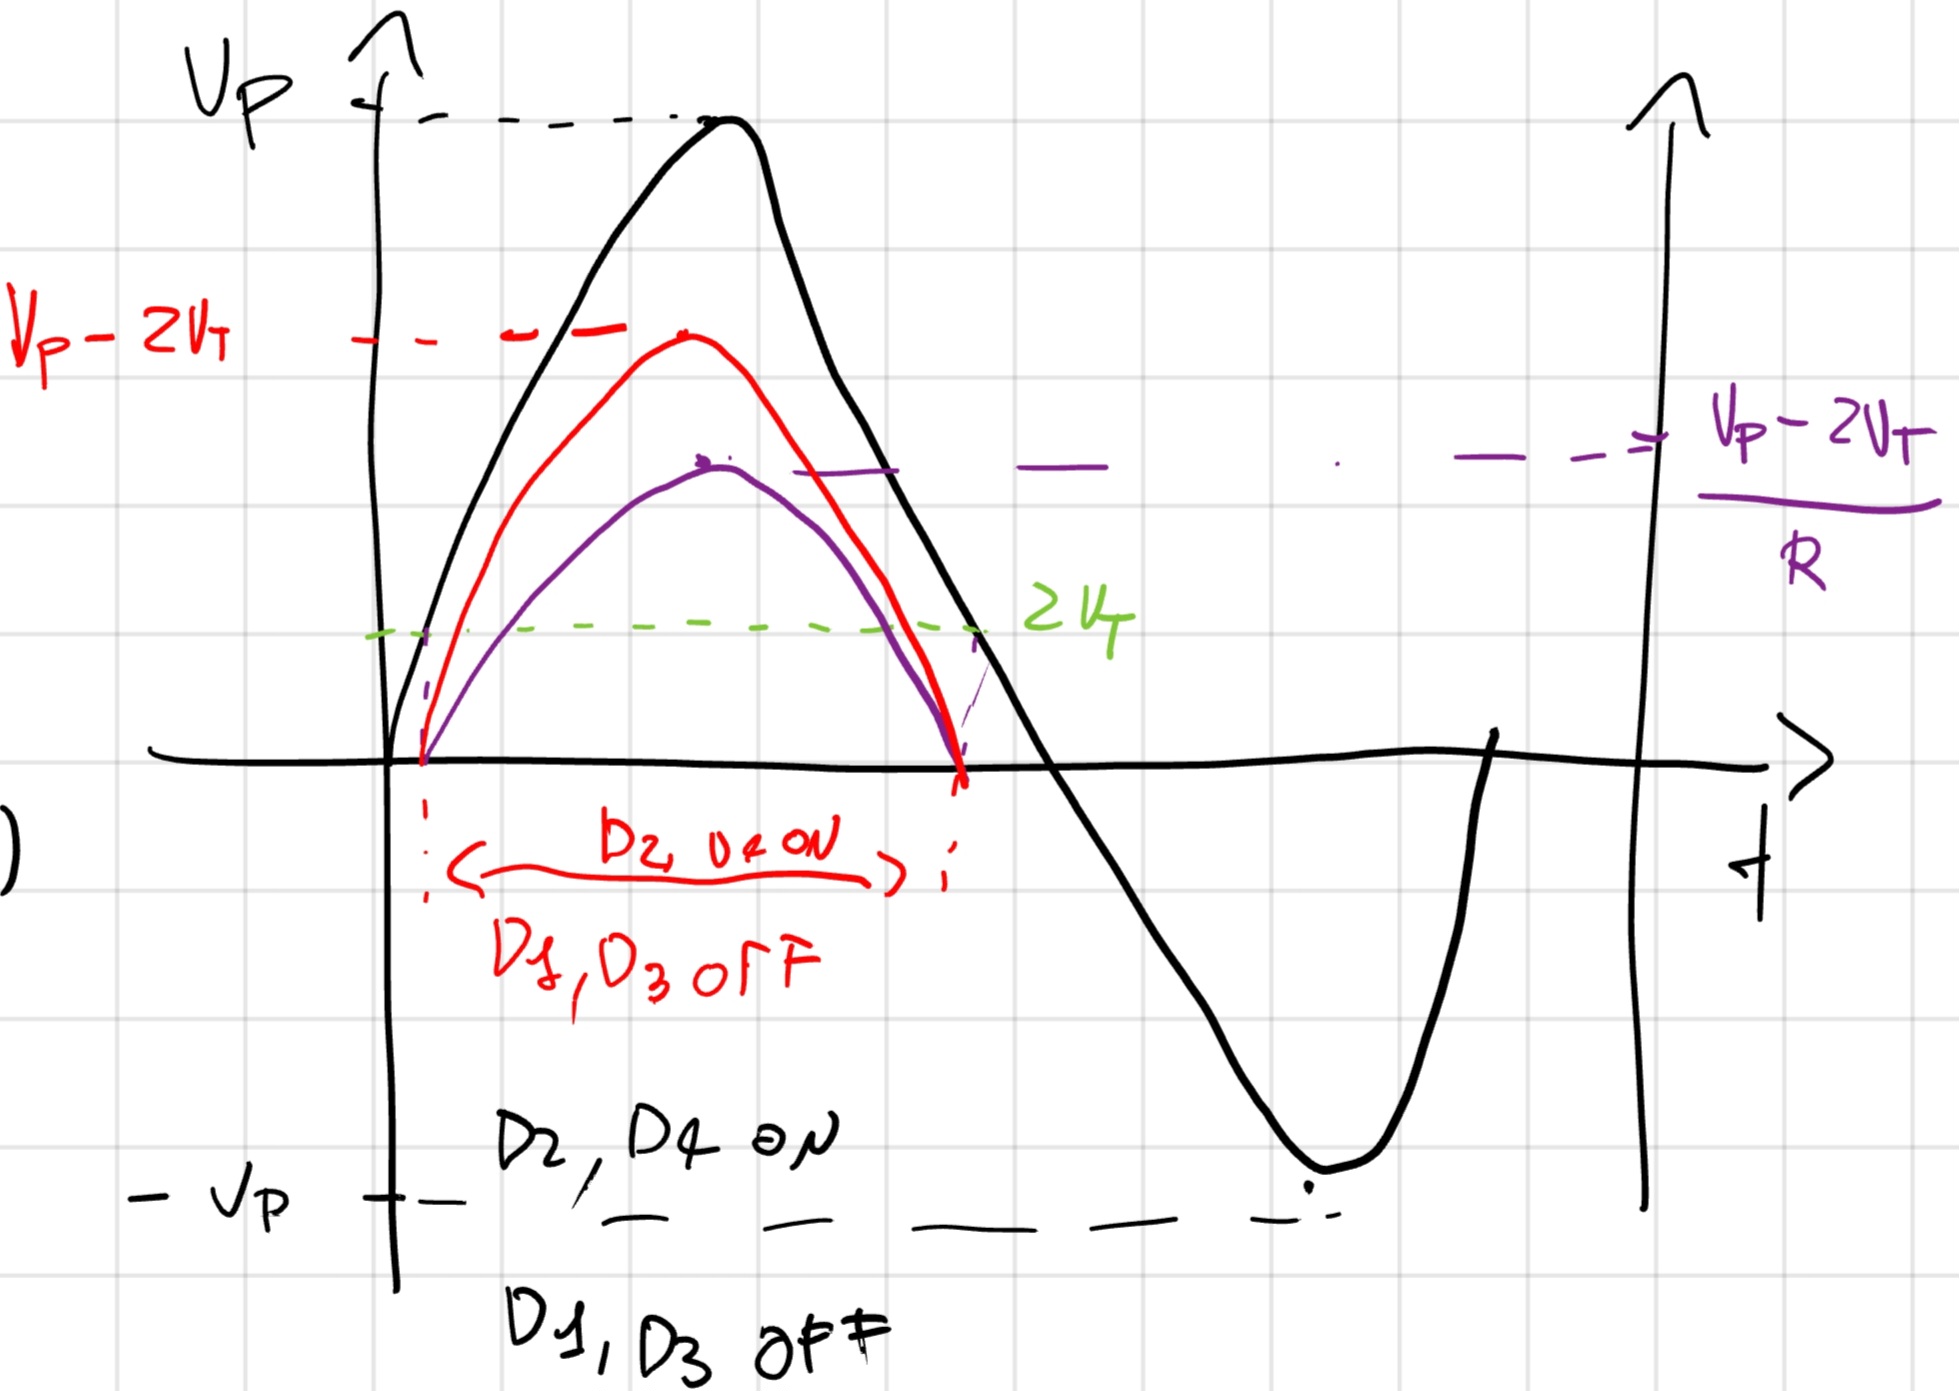 Vp
Vp - 2VT
Vp - 2VT
R
2VT
)
D2, D4 ON
t
D1, D3 OFF
D2, D4 ON
- Vp
D1, D3 OFF